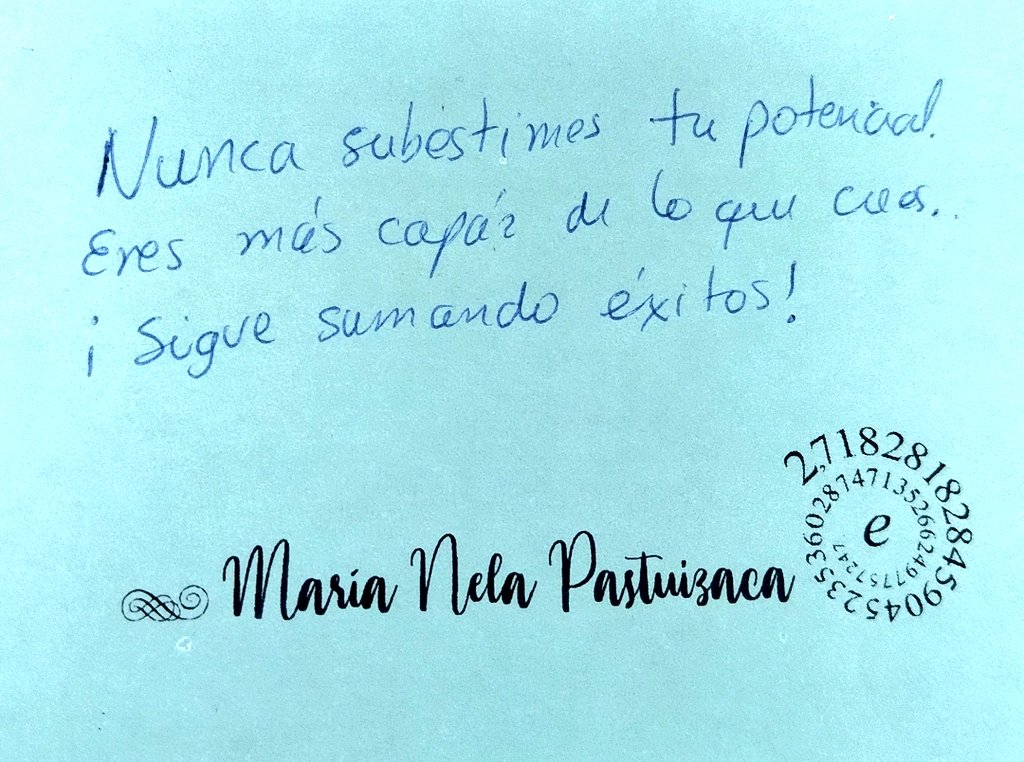 Nunca subestimes tu potencial.
Eres más capáz de lo que crees..
¡Sigue sumando éxitos!
María Nela Pastuizaca
2,718281828459045235360287471352662497757247
e